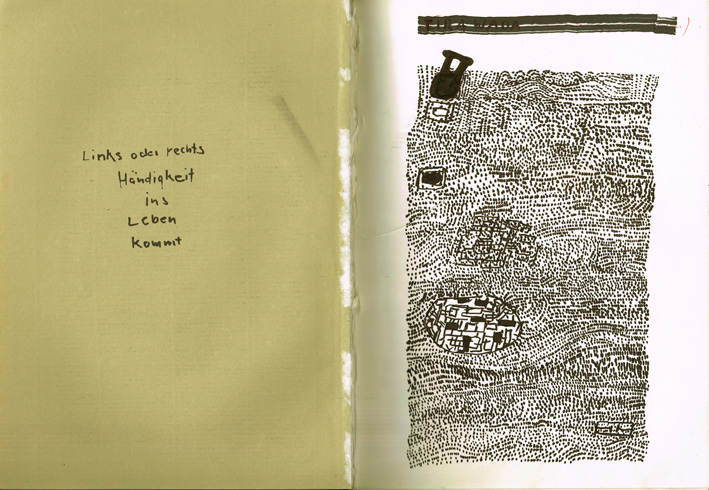 Links oder rechts
Händigkeit
ins
Leben
kommt